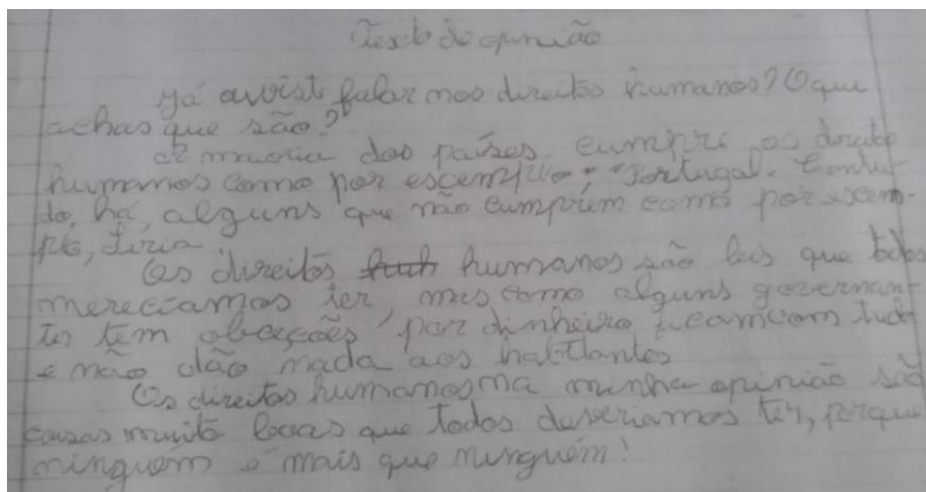 Texto de opinião
Já ouviste falar nos direitos humanos? O que
achas que são?
A maioria dos países, cumpre os direito
humanos como por escemplo; Portugal. Contu-
do, há, alguns que não cumprem como por escem-
plo, Síria
Os direitos humanos são leis que todos
mereciamos ter, mas como alguns governan-
tes tem obceções por dinheiro ficam com tudo
e não dão nada aos habitantes
Os direitos humanos na minha opinião são
coisas muito boas que todos deveriamos ter, porque
ninguém é mais que ninguém!